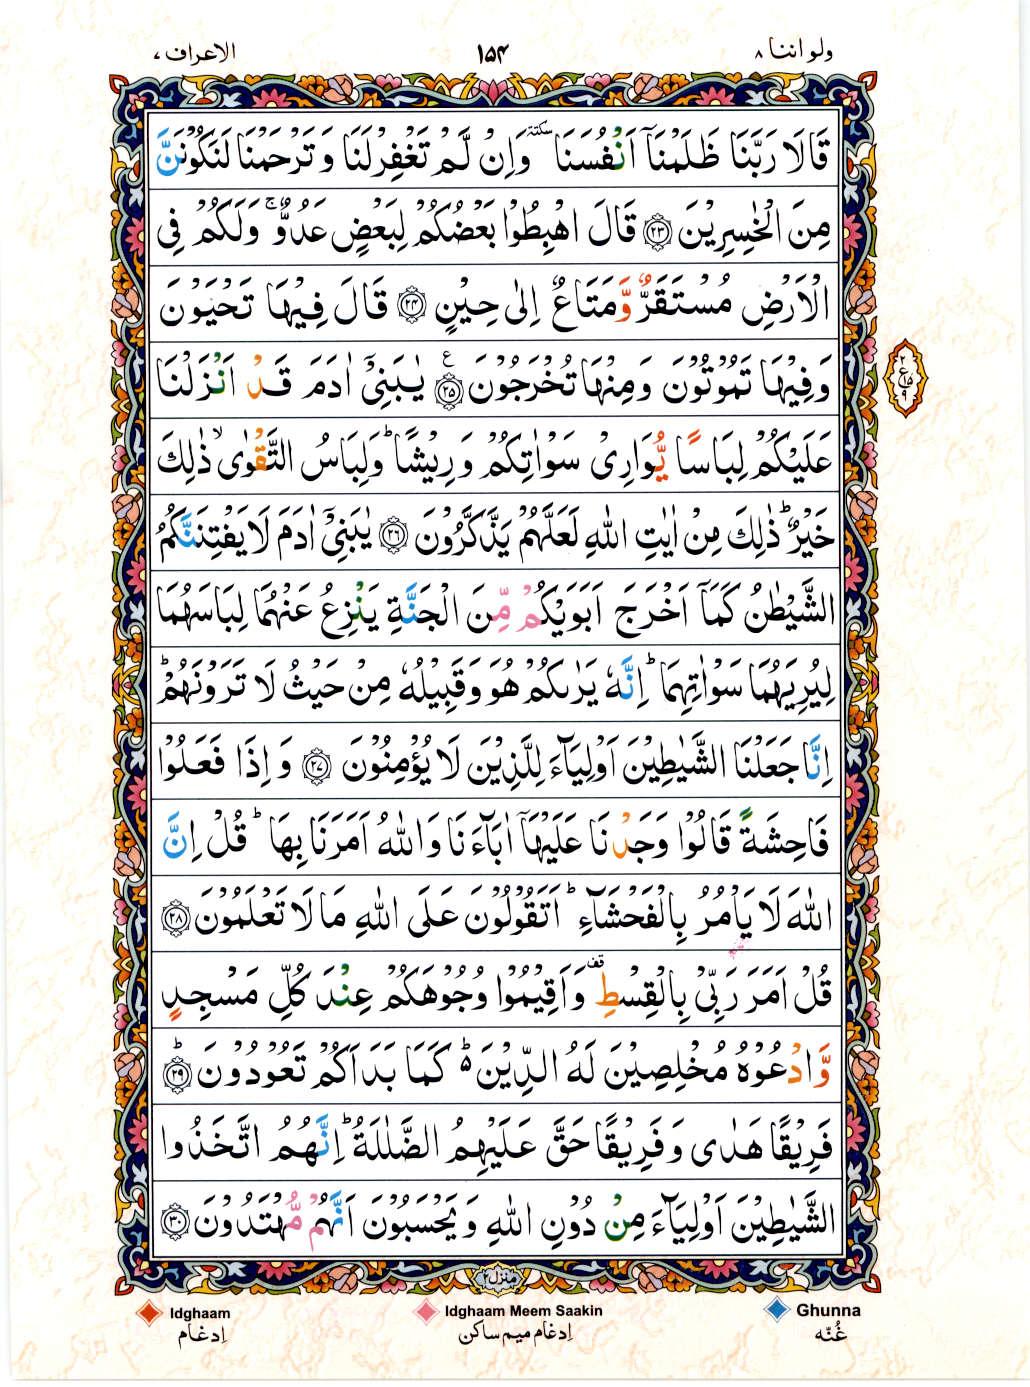 ولو اننا ۸
۱۵۴
الاعراف ۷
قَالَا رَبَّنَا ظَلَمْنَآ اَنْفُسَنَا ٚ وَاِنْ لَّمْ تَغْفِرْلَنَا وَ تَرْحَمْنَا لَنَكُوْنَنَّ
مِنَ الْخٰسِرِيْنَ ﴿۲۳﴾ قَالَ اهْبِطُوْا بَعْضُكُمْ لِبَعْضٍ عَدُوٌّ ۚ وَلَكُمْ فِى
الْاَرْضِ مُسْتَقَرٌّ وَّمَتَاعٌ اِلٰى حِيْنٍ ﴿۲۴﴾ قَالَ فِيْهَا تَحْيَوْنَ
وَفِيْهَا تَمُوْتُوْنَ وَمِنْهَا تُخْرَجُوْنَ ﴿۲۵﴾ ع يٰبَنِىْٓ اٰدَمَ قَدْ اَنْزَلْنَا
عَلَيْكُمْ لِبَاسًا يُّوَارِىْ سَوْاٰتِكُمْ وَرِيْشًا ؕ وَلِبَاسُ التَّقْوٰى ۙ ذٰلِكَ
خَيْرٌ ؕ ذٰلِكَ مِنْ اٰيٰتِ اللّٰهِ لَعَلَّهُمْ يَذَّكَّرُوْنَ ﴿۲۶﴾ يٰبَنِىْٓ اٰدَمَ لَا يَفْتِنَنَّكُمُ
الشَّيْطٰنُ كَمَآ اَخْرَجَ اَبَوَيْكُمْ مِّنَ الْجَنَّةِ يَنْزِعُ عَنْهُمَا لِبَاسَهُمَا
لِيُرِيَهُمَا سَوْاٰتِهِمَا ؕ اِنَّهٗ يَرٰىكُمْ هُوَ وَقَبِيْلُهٗ مِنْ حَيْثُ لَا تَرَوْنَهُمْ ؕ
اِنَّا جَعَلْنَا الشَّيٰطِيْنَ اَوْلِيَآءَ لِلَّذِيْنَ لَا يُؤْمِنُوْنَ ﴿۲۷﴾ وَ اِذَا فَعَلُوْا
فَاحِشَةً قَالُوْا وَجَدْنَا عَلَيْهَآ اٰبَآءَنَا وَاللّٰهُ اَمَرَنَا بِهَا ؕ قُلْ اِنَّ
اللّٰهَ لَا يَاْمُرُ بِالْفَحْشَآءِ ؕ اَتَقُوْلُوْنَ عَلَى اللّٰهِ مَا لَا تَعْلَمُوْنَ ﴿۲۸﴾
قُلْ اَمَرَ رَبِّىْ بِالْقِسْطِ قف وَاَقِيْمُوْا وُجُوْهَكُمْ عِنْدَ كُلِّ مَسْجِدٍ
وَّادْعُوْهُ مُخْلِصِيْنَ لَهُ الدِّيْنَ ؕ۬ كَمَا بَدَاَكُمْ تَعُوْدُوْنَ ؕ ﴿۲۹﴾
فَرِيْقًا هَدٰى وَفَرِيْقًا حَقَّ عَلَيْهِمُ الضَّلٰلَةُ ؕ اِنَّهُمُ اتَّخَذُوا
الشَّيٰطِيْنَ اَوْلِيَآءَ مِنْ دُوْنِ اللّٰهِ وَ يَحْسَبُوْنَ اَنَّهُمْ مُّهْتَدُوْنَ ﴿۳۰﴾
۲
ع
۱۵
۹
منزل ۲
Idghaam
Idghaam Meem Saakin
Ghunna
اِدغام
اِدغام میم ساکن
غُنّه